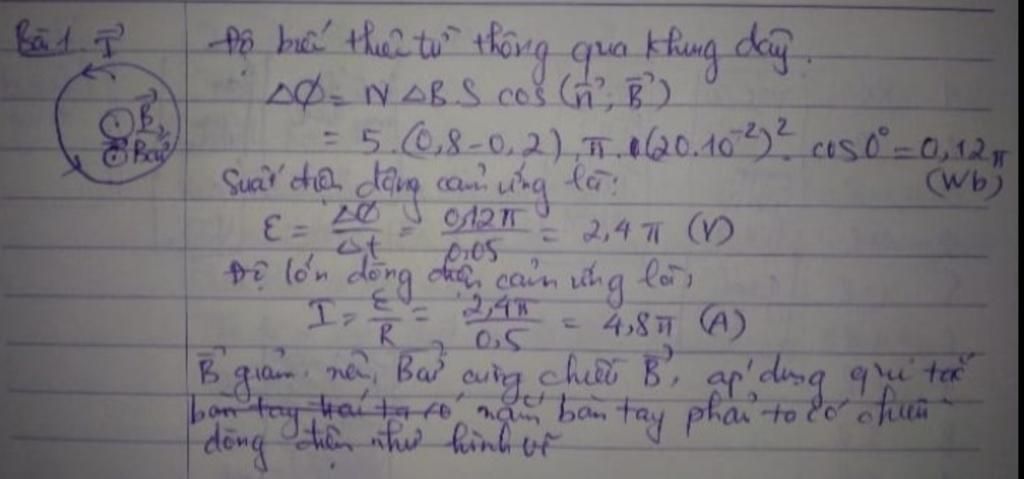 Bài 1. I⃗
Độ biến thiên từ thông qua khung dây.
ΔØ = N ΔB S cos (n⃗; B⃗)
= 5 . (0,8 - 0,2) . π . (20.10⁻²)² . cos 0° = 0,12π
(Wb)
B⃗
Bcư⃗
Suất điện động cảm ứng là:
ε = ΔØ/Δt = 0,12π/0,05 = 2,4π (V)
Độ lớn dòng điện cảm ứng là:
I = ε/R = 2,4π/0,5 = 4,8π (A)
B⃗ giảm nên Bcư⃗ cùng chiều B⃗, áp dụng qui tắc
bàn tay trái ta có nắm bàn tay phải ta có chiều
dòng điện như hình vẽ